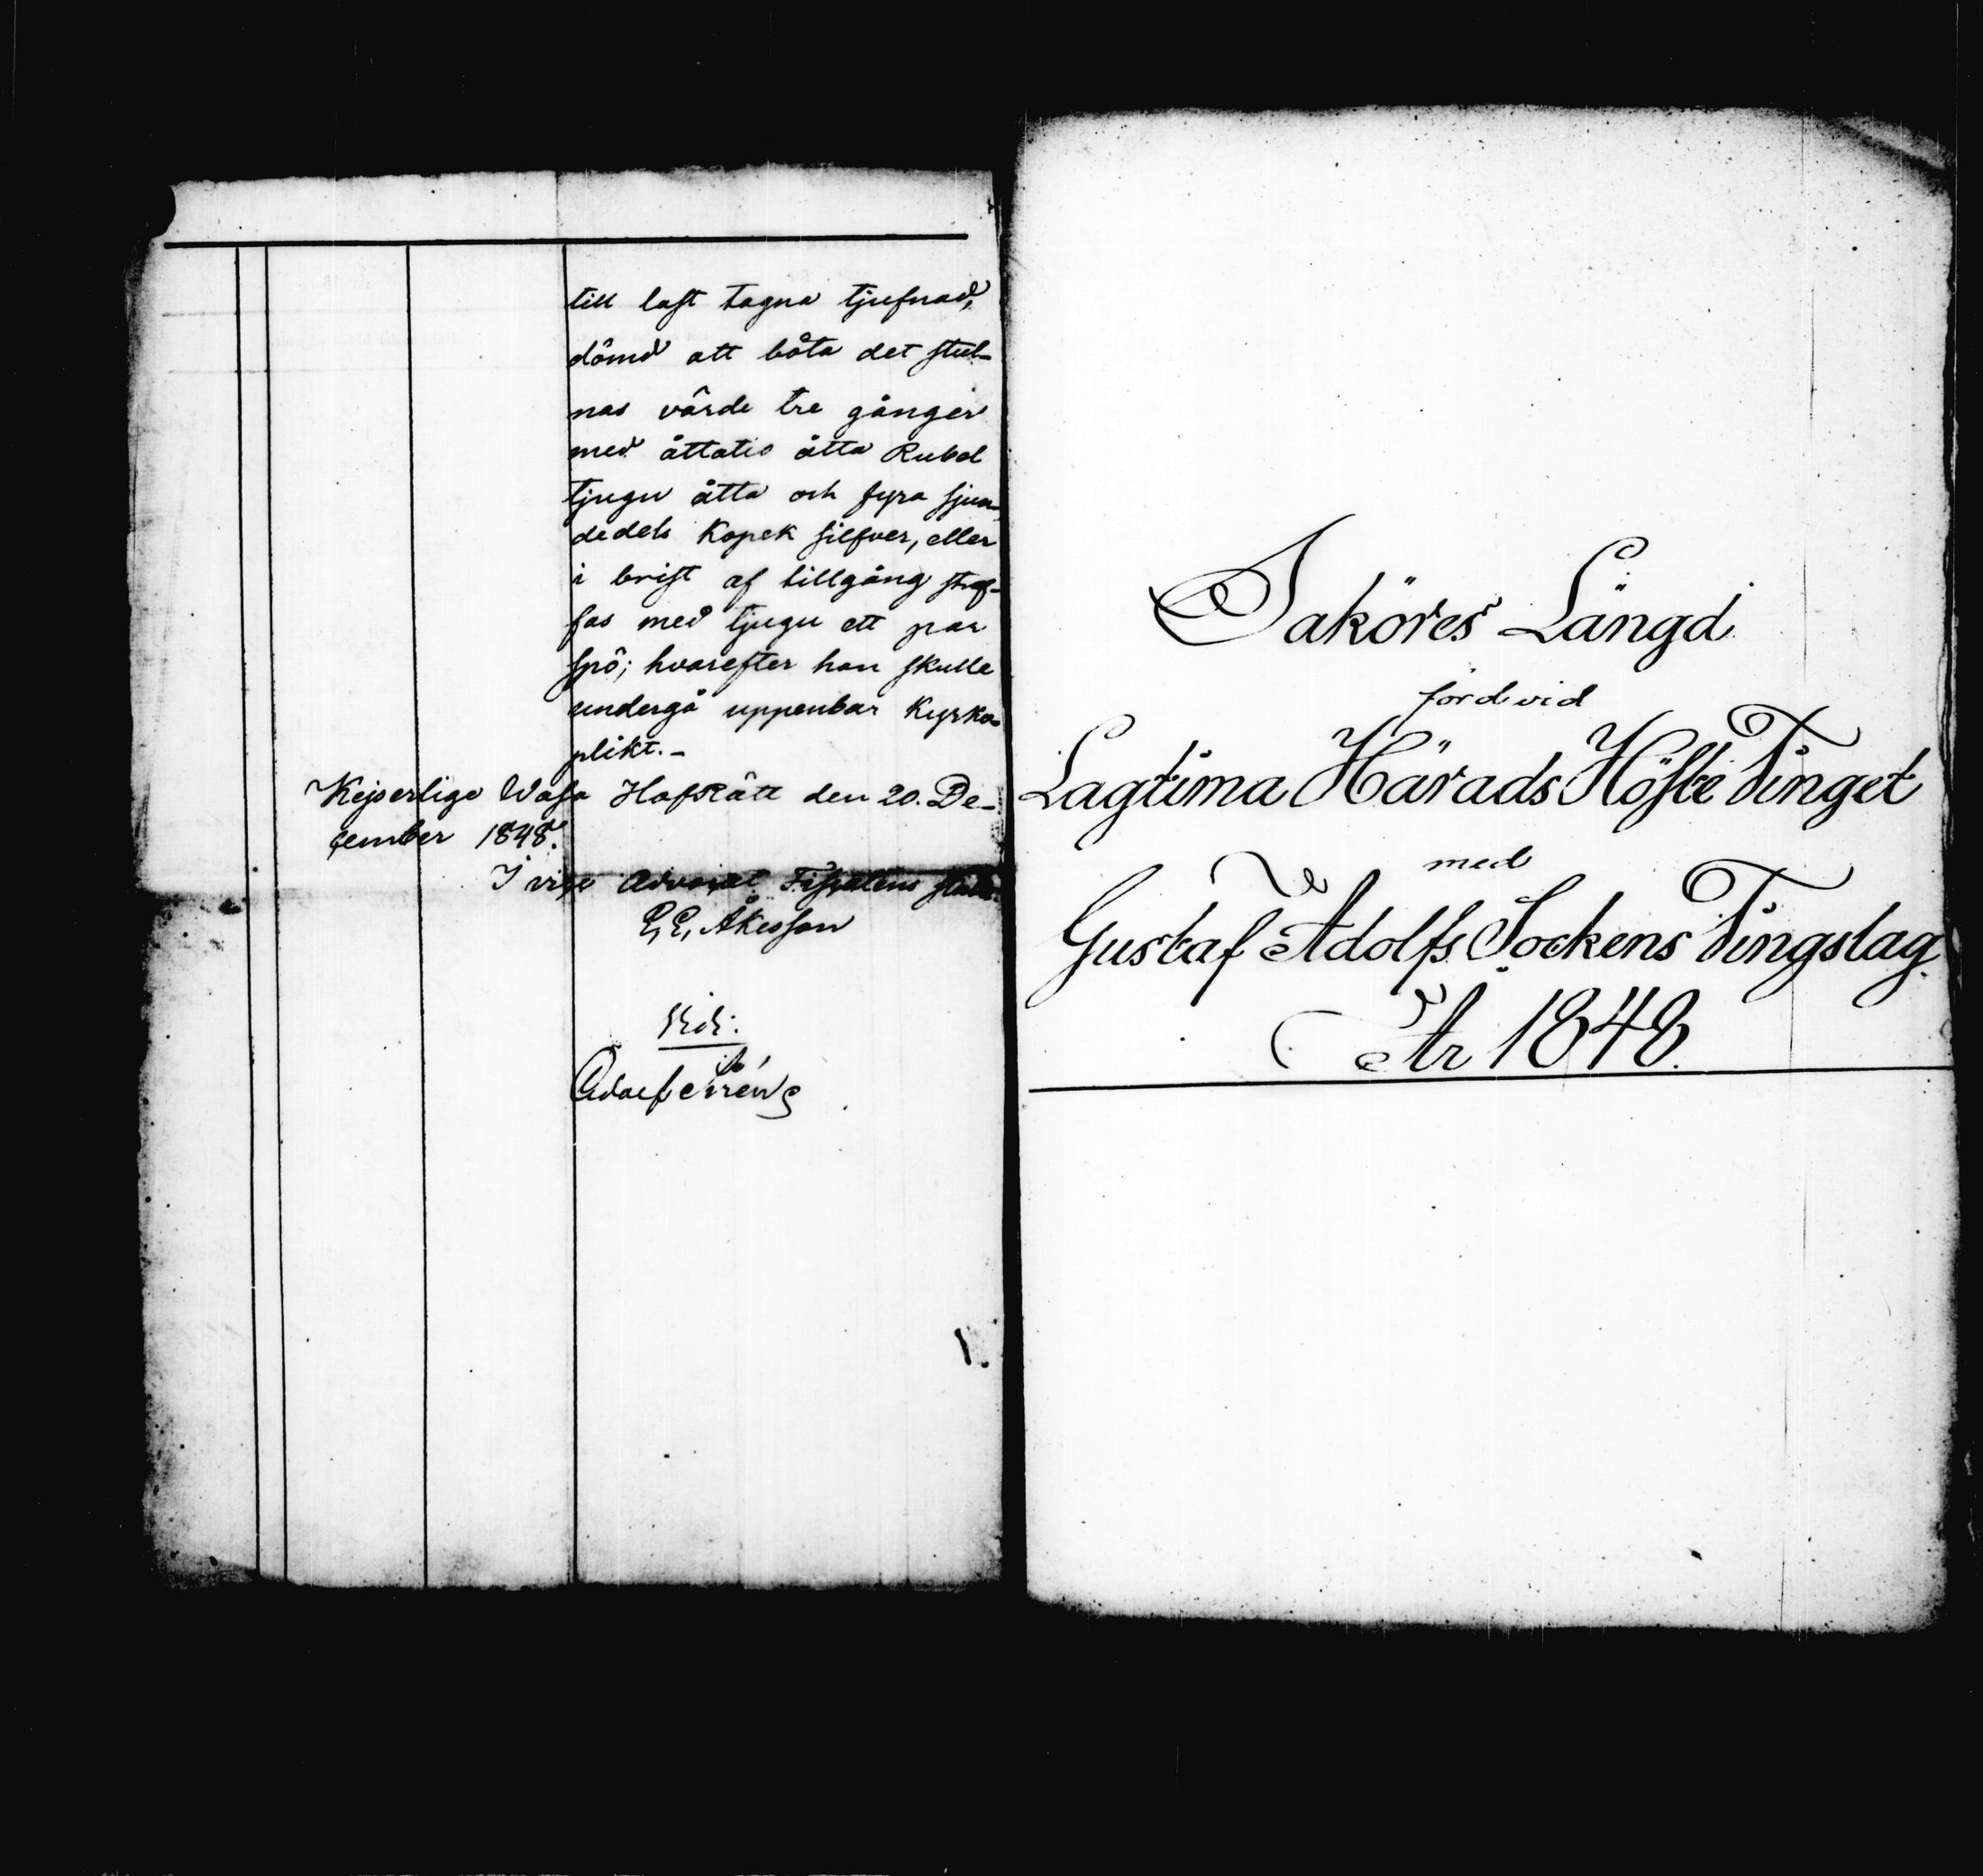 till last tagna tjufnad,
dömd att böta det stul-
nas värde tre gånger
med åttatio åtta Rubel
tjugu åtta och fyra sjun-
dedels Kopek silfver, eller
i brist af tillgång straf-
fas med tjugu ett par
spö; hvarefter han skulle
undergå uppenbar Kyrko-
plikt.-
Kejserlige Wasa HofRätt den 20. De-
cember 1848.
I vice Advocat Fiscalens ställe
Åkesson
Saköres Längd
förd vid
Lagtima Härads Höste Tinget
med
Gustaf Adolfs Sockens Tingslag.
År 1848.